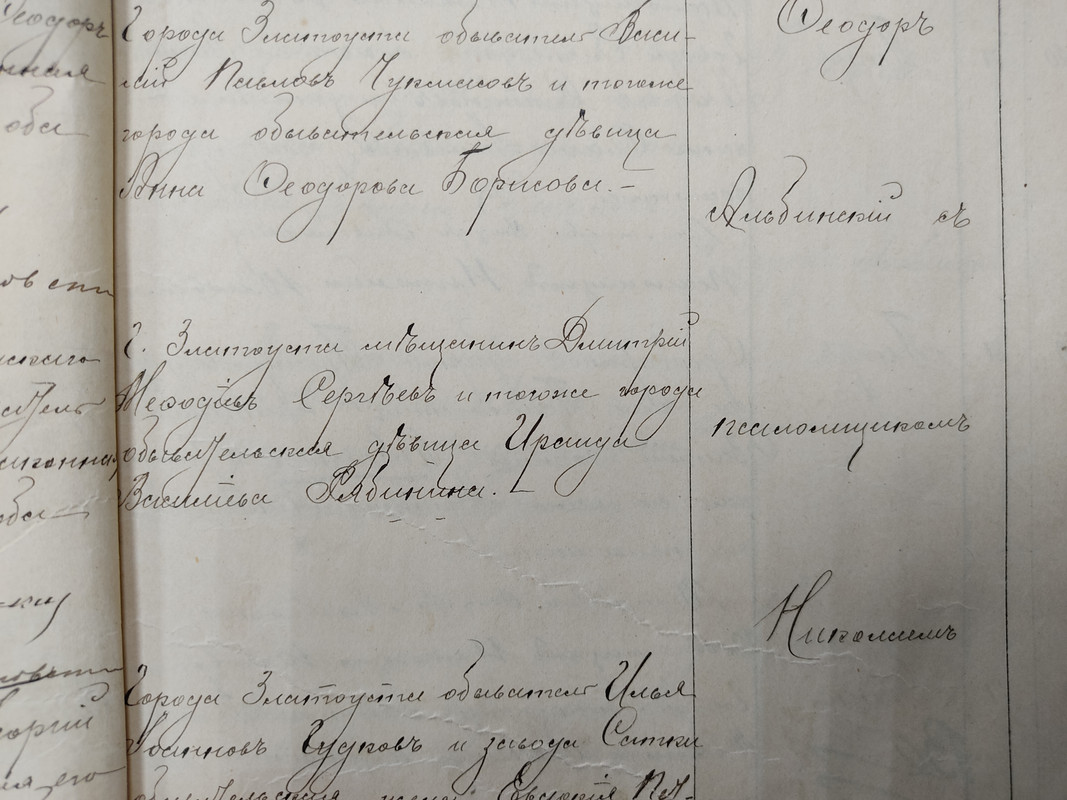 Ѳеодоръ
ова
Города Златоуста обыватель Васи-
лій Павловъ Чурмасовъ и тогоже
города обывательская дѣвица
Анна Ѳеодорова Борисова. -
Г. Златоуста мѣщанинъ Дмитрій
Меѳодіевъ Сергѣевъ и тогоже города
обывательская дѣвица Ираида
Василіева Рябинина. -
Города Златоуста обыватель Илья
Іоанновъ Гудковъ и завода Сатки
обывательская Евдокія
Ѳеодоръ
Альбинскій съ
псаломщикомъ
Николаемъ